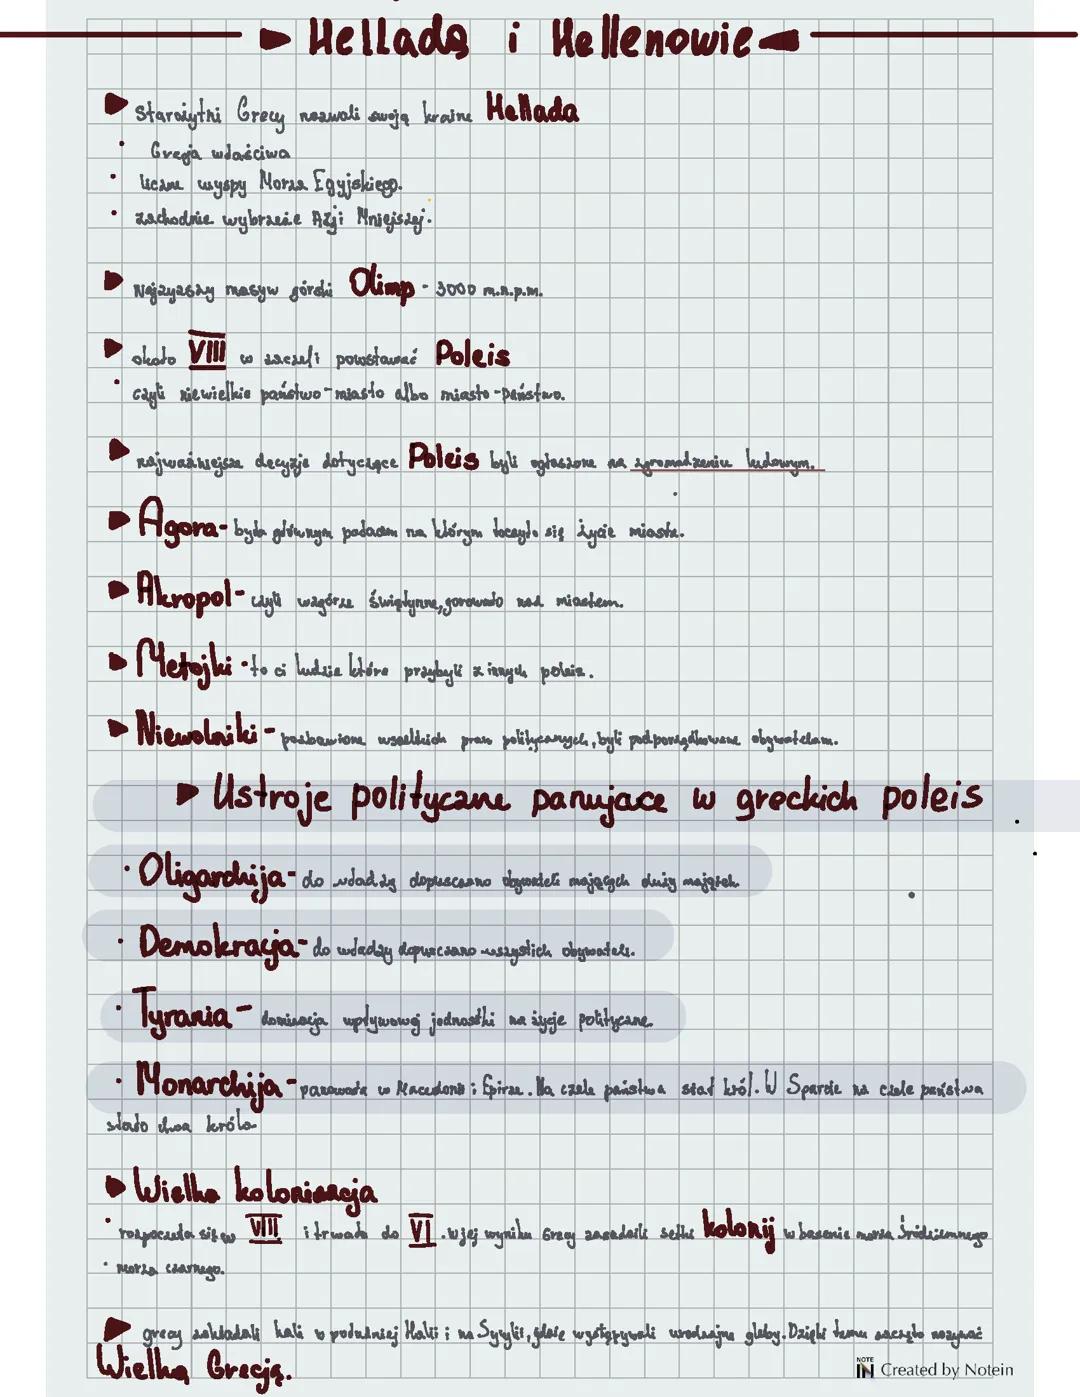 Hellada i Hellenowie
Starożytni Grecy nazwali swoją kraine Hellada
Grecja właściwa
liczne wyspy Morza Egyjskiego.
zachodnie wybrzeże Azji Mniejszej.
Najzyższy masyw górski Olimp - 3000 m.n.p.m.
około VIII w zaczeli powstawać Poleis
czyli niewielkie państwo-miasto albo miasto-państwo.
najważniejsze decyzje dotyczące Poleis byli ogłaszone na zgromadzeniu ludowym.
Agora- była głównym na którym toczyło się życie miasta.
Akropol- czyli wzgórze świątynne, gorowało nad miastem.
Metojki - to ci ludzie które przybyli z innych poleiz.
Niewolniki - pozbawione wszelkich praw politycznych, byli podporządkowane obywatelam.
Ustroje polityczne panujace w greckich poleis
Oligarchija- do władzy dopuszczano obywateli mających duży majątek.
Demokracja- do władzy dopuszczano wszystich obywateli.
Tyrania - dominacja wpływowej jednostki na życje polityczne.
Monarchija - panowała w Macedonii i Epirze. Na czele państwa stał król. W Sparcie na czele państwa
stało dwa króla
Wielka kolonizacja
rozpoczeła się w VIII i trwała do VI . w jej wyniku Grecy zasadzili setki kolonij w basenie morza Śródziemnego
morza czarnego.
grecy zakładali w południej Italii i na Sycylii, gdzie występywali urodzajne gleby. Dzięki temu zaczęto nazywać
Wielką Grecją.
NOTE IN Created by Notein